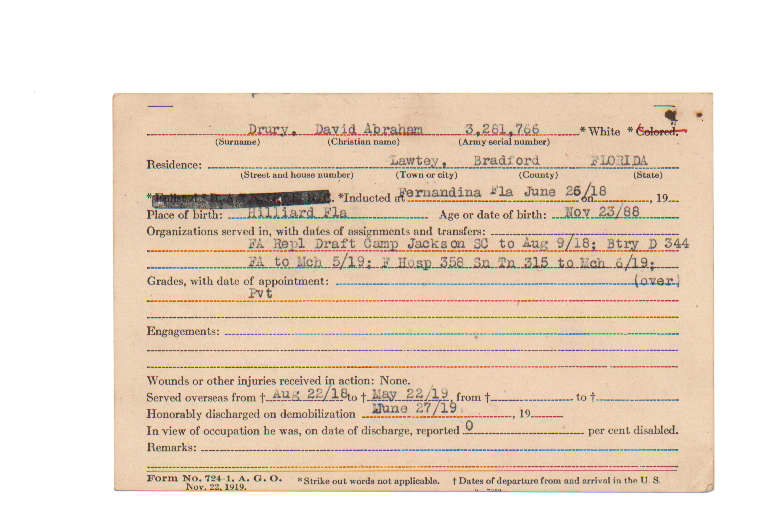 Drury, David Abraham 3,281,766 * White * Colored.
(Surname) (Christian name) (Army serial number)
Residence: Lawtey, Bradford FLORIDA
(Street and house number) (Town or city) (County) (State)
*Inducted at Fernandina Fla June 26/18 on , 19
Place of birth: Hilliard Fla Age or date of birth: Nov 23/88
Organizations served in, with dates of assignments and transfers:
FA Repl Draft Camp Jackson SC to Aug 9/18; Btry D 344
FA to Mch 5/19; F Hosp 358 Sn Tn 315 to Mch 6/19;
Grades, with date of appointment: (over)
Pvt
Engagements:
Wounds or other injuries received in action: None.
Served overseas from † Aug 22/18 to † May 22/19, from † to †
Honorably discharged on demobilization June 27/19, 19
In view of occupation he was, on date of discharge, reported 0 per cent disabled.
Remarks:
Form No. 724-1, A. G. O. *Strike out words not applicable. † Dates of departure from and arrival in the U. S.
Nov. 22, 1919.